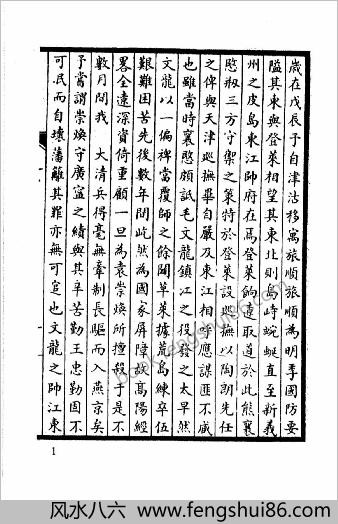 歲在戊辰予自津沽移寓旅順旅順為明季國防要
隘其東與登萊相望其東北則島嶼蜿蜒直至新義
州之皮島東江帥府在焉登萊餉道取道於此熊襄
愍剏三方守禦之策特於登萊設巡撫以陶朗先任
之俾與天津巡撫畢自嚴及東江相爭應謀匪不臧
也雖當時襄愍頗詆毛文龍鎮江之役發之太早然
文龍以一偏裨當覆師之餘闢草萊據荒島練卒伍
艱難困苦先後數年間屹然為國家屏障高陽經
畧全遼深資倚重顧一旦為袁崇煥所擅殺于是不
數月間我 大清兵得毫無牽制長驅而入燕京矣
予嘗謂崇煥守廣寧之績與其辛苦勤王忠勤固不
可泯而自壞藩籬其罪亦無可逭也文龍之帥江東
1
风水八六：www.fengshui86.com